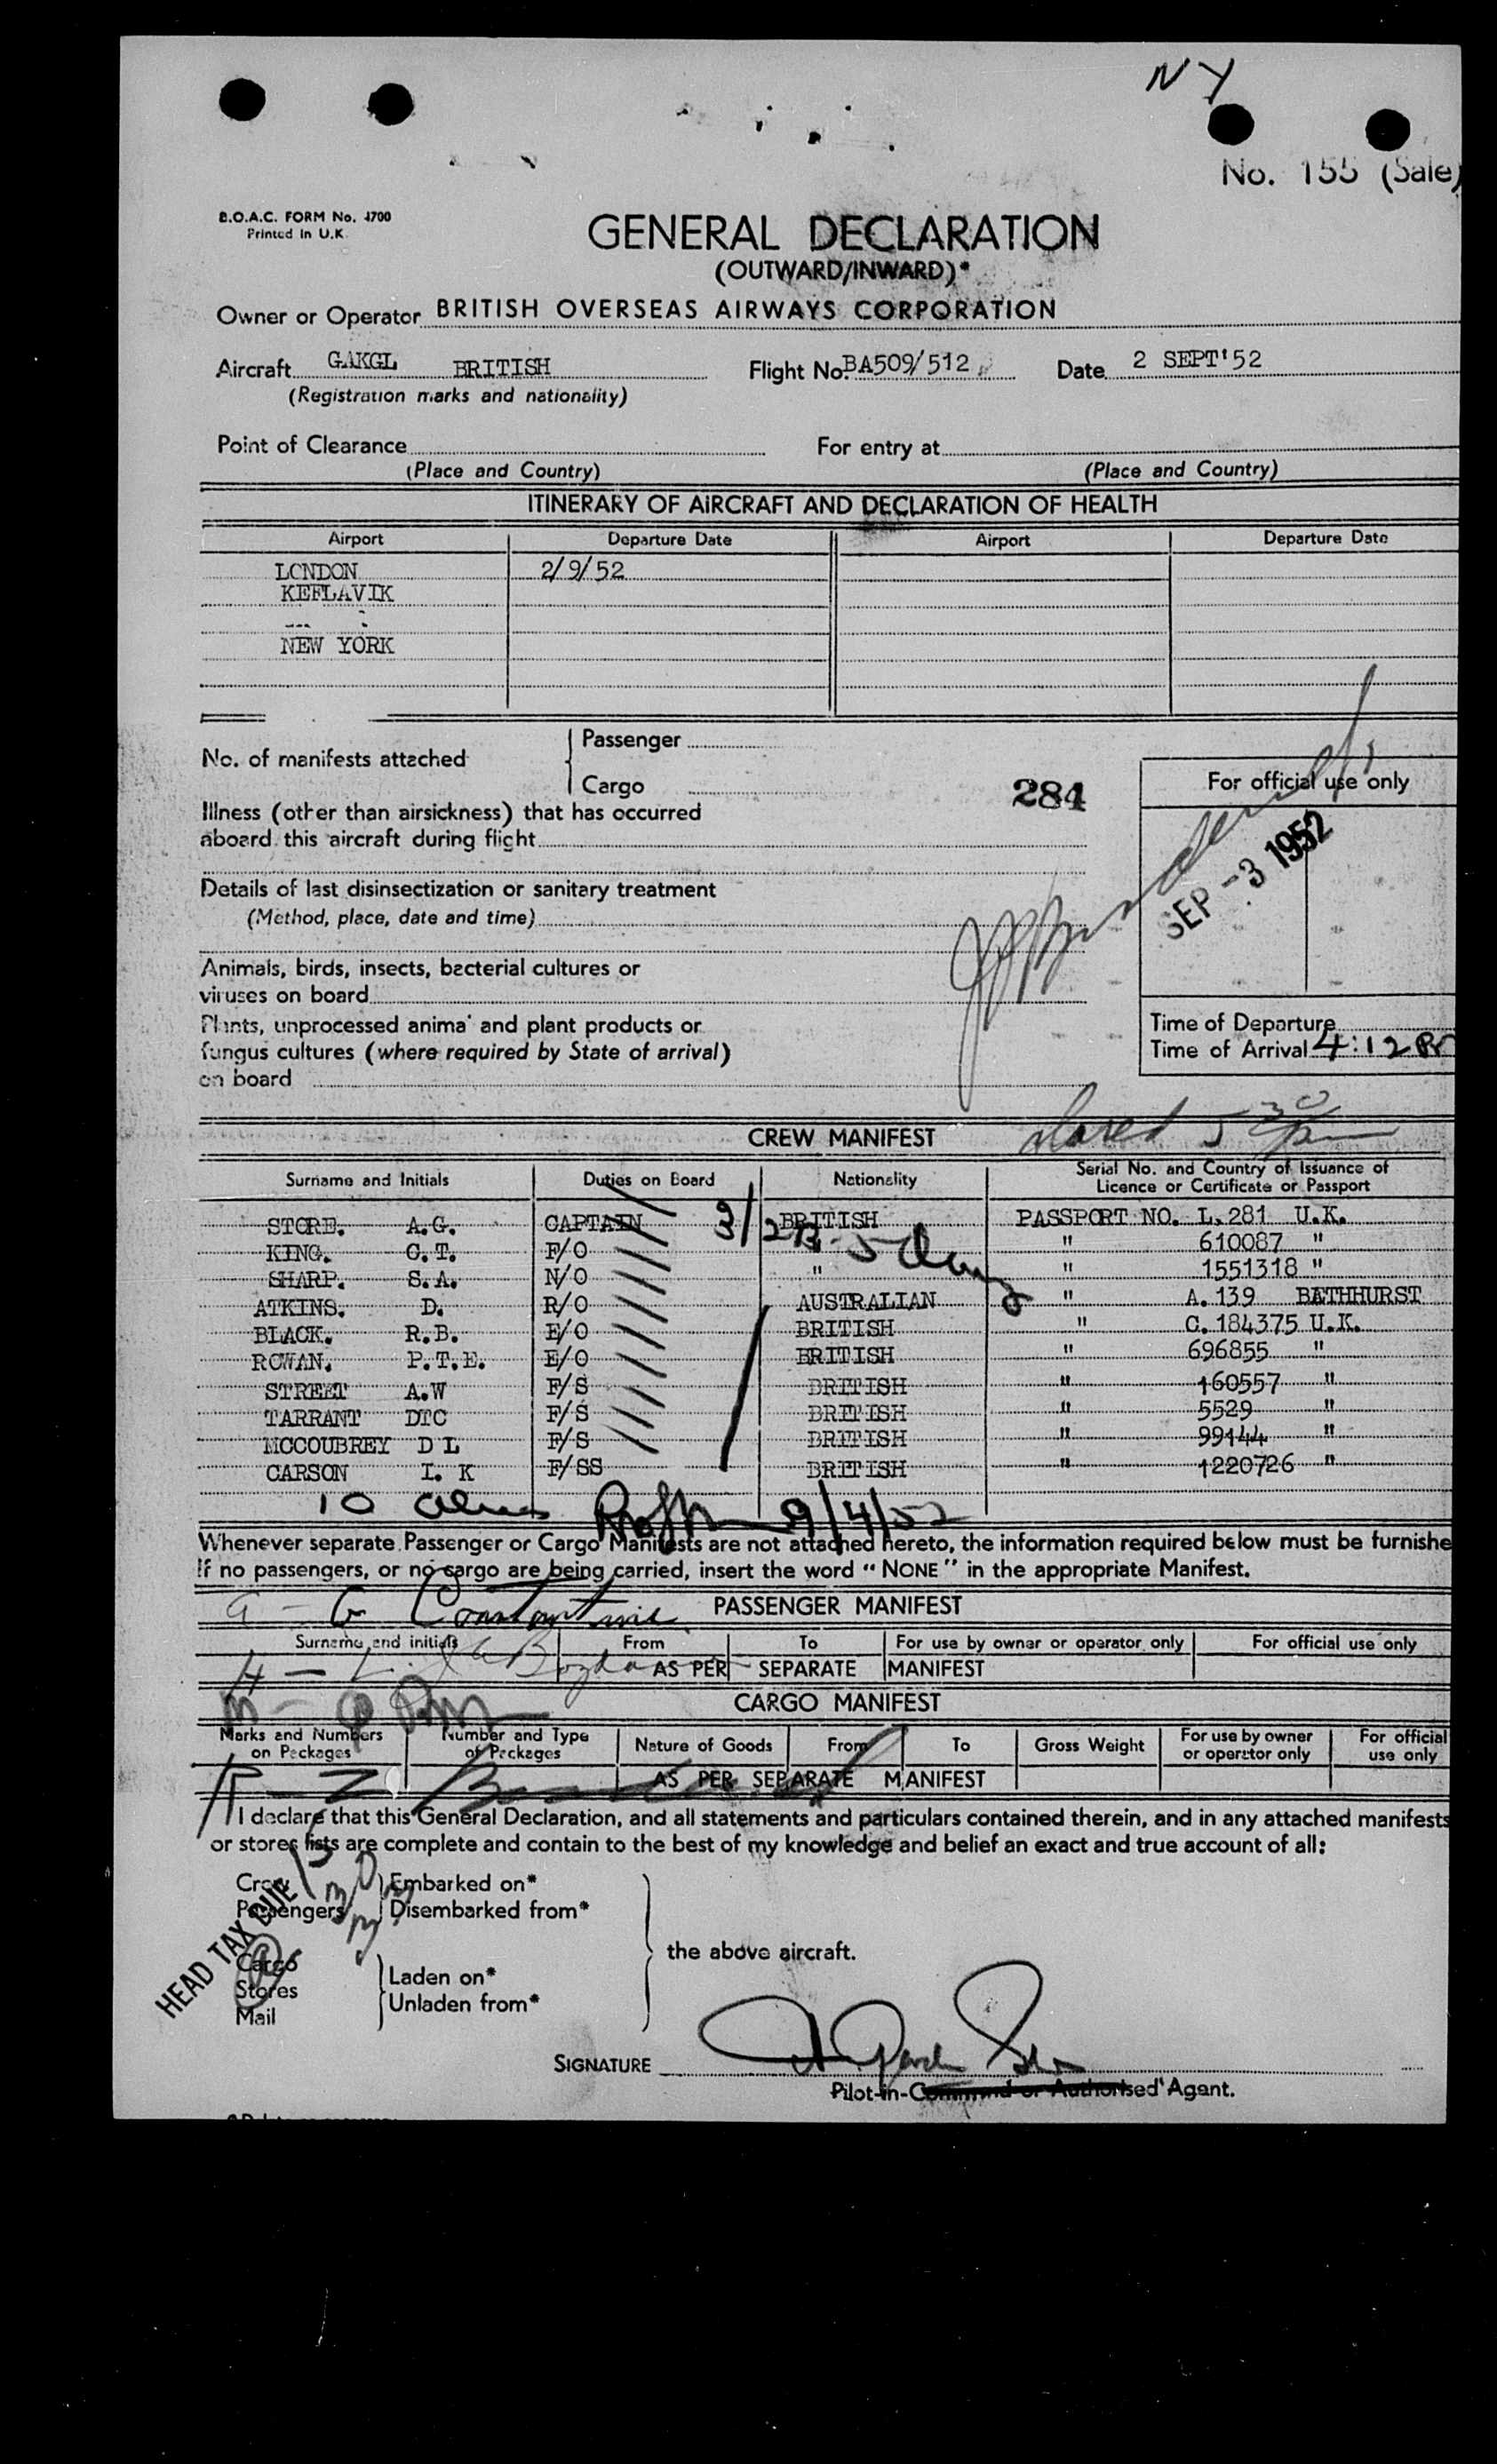 NY
No. 155 (Sale)
B.O.A.C. FORM No. 4700
Printed in U.K.
GENERAL DECLARATION
(OUTWARD/INWARD)*
Owner or Operator BRITISH OVERSEAS AIRWAYS CORPORATION
Aircraft GAKGL BRITISH Flight No. BA509/512 Date 2 SEPT'52
(Registration marks and nationality)
Point of Clearance For entry at
(Place and Country) (Place and Country)
ITINERARY OF AIRCRAFT AND DECLARATION OF HEALTH
Airport Departure Date Airport Departure Date
LONDON 2/9/52
KEFLAVIK
NEW YORK
No. of manifests attached Passenger
Cargo
284
For official use only
Illness (other than airsickness) that has occurred
aboard this aircraft during flight
SEP -3 1952
Details of last disinsectization or sanitary treatment
(Method, place, date and time)
Animals, birds, insects, bacterial cultures or
viruses on board
Plants, unprocessed animal and plant products or
fungus cultures (where required by State of arrival)
on board
Time of Departure
Time of Arrival 4:12 Pm
CREW MANIFEST
Surname and Initials Duties on Board Nationality Serial No. and Country of Issuance of
Licence or Certificate or Passport
STORE. A.G. CAPTAIN BRITISH PASSPORT NO. L.281 U.K.
KING. C.T. F/O " 610087 "
SHARP. S.A. N/O " " 1551318 "
ATKINS. D. R/O AUSTRALIAN " A.139 BATHHURST
BLACK. R.B. E/O BRITISH " C.184375 U.K.
ROWAN. P.T.E. E/O BRITISH " 696855 "
STREET A.W F/S BRITISH " 160557 "
TARRANT DTC F/S BRITISH " 5529 "
MCCOUBREY D L F/S BRITISH " 99144 "
CARSON I. K F/SS BRITISH " 1220726 "
10 9/4/52
Whenever separate Passenger or Cargo Manifests are not attached hereto, the information required below must be furnishe
If no passengers, or no cargo are being carried, insert the word “NONE” in the appropriate Manifest.
a - G Constantine
PASSENGER MANIFEST
Surname and initials From To For use by owner or operator only For official use only
AS PER SEPARATE MANIFEST
CARGO MANIFEST
Marks and Numbers on Packages Number and Type of Packages Nature of Goods From To Gross Weight For use by owner or operator only For official use only
AS PER SEPARATE MANIFEST
I declare that this General Declaration, and all statements and particulars contained therein, and in any attached manifests
or stores lists are complete and contain to the best of my knowledge and belief an exact and true account of all:
Crew Embarked on*
Passengers Disembarked from*
HEAD TAX DUE
the above aircraft.
Cargo
Stores
Mail
Laden on*
Unladen from*
SIGNATURE
Pilot-in-Command or Authorised Agent.